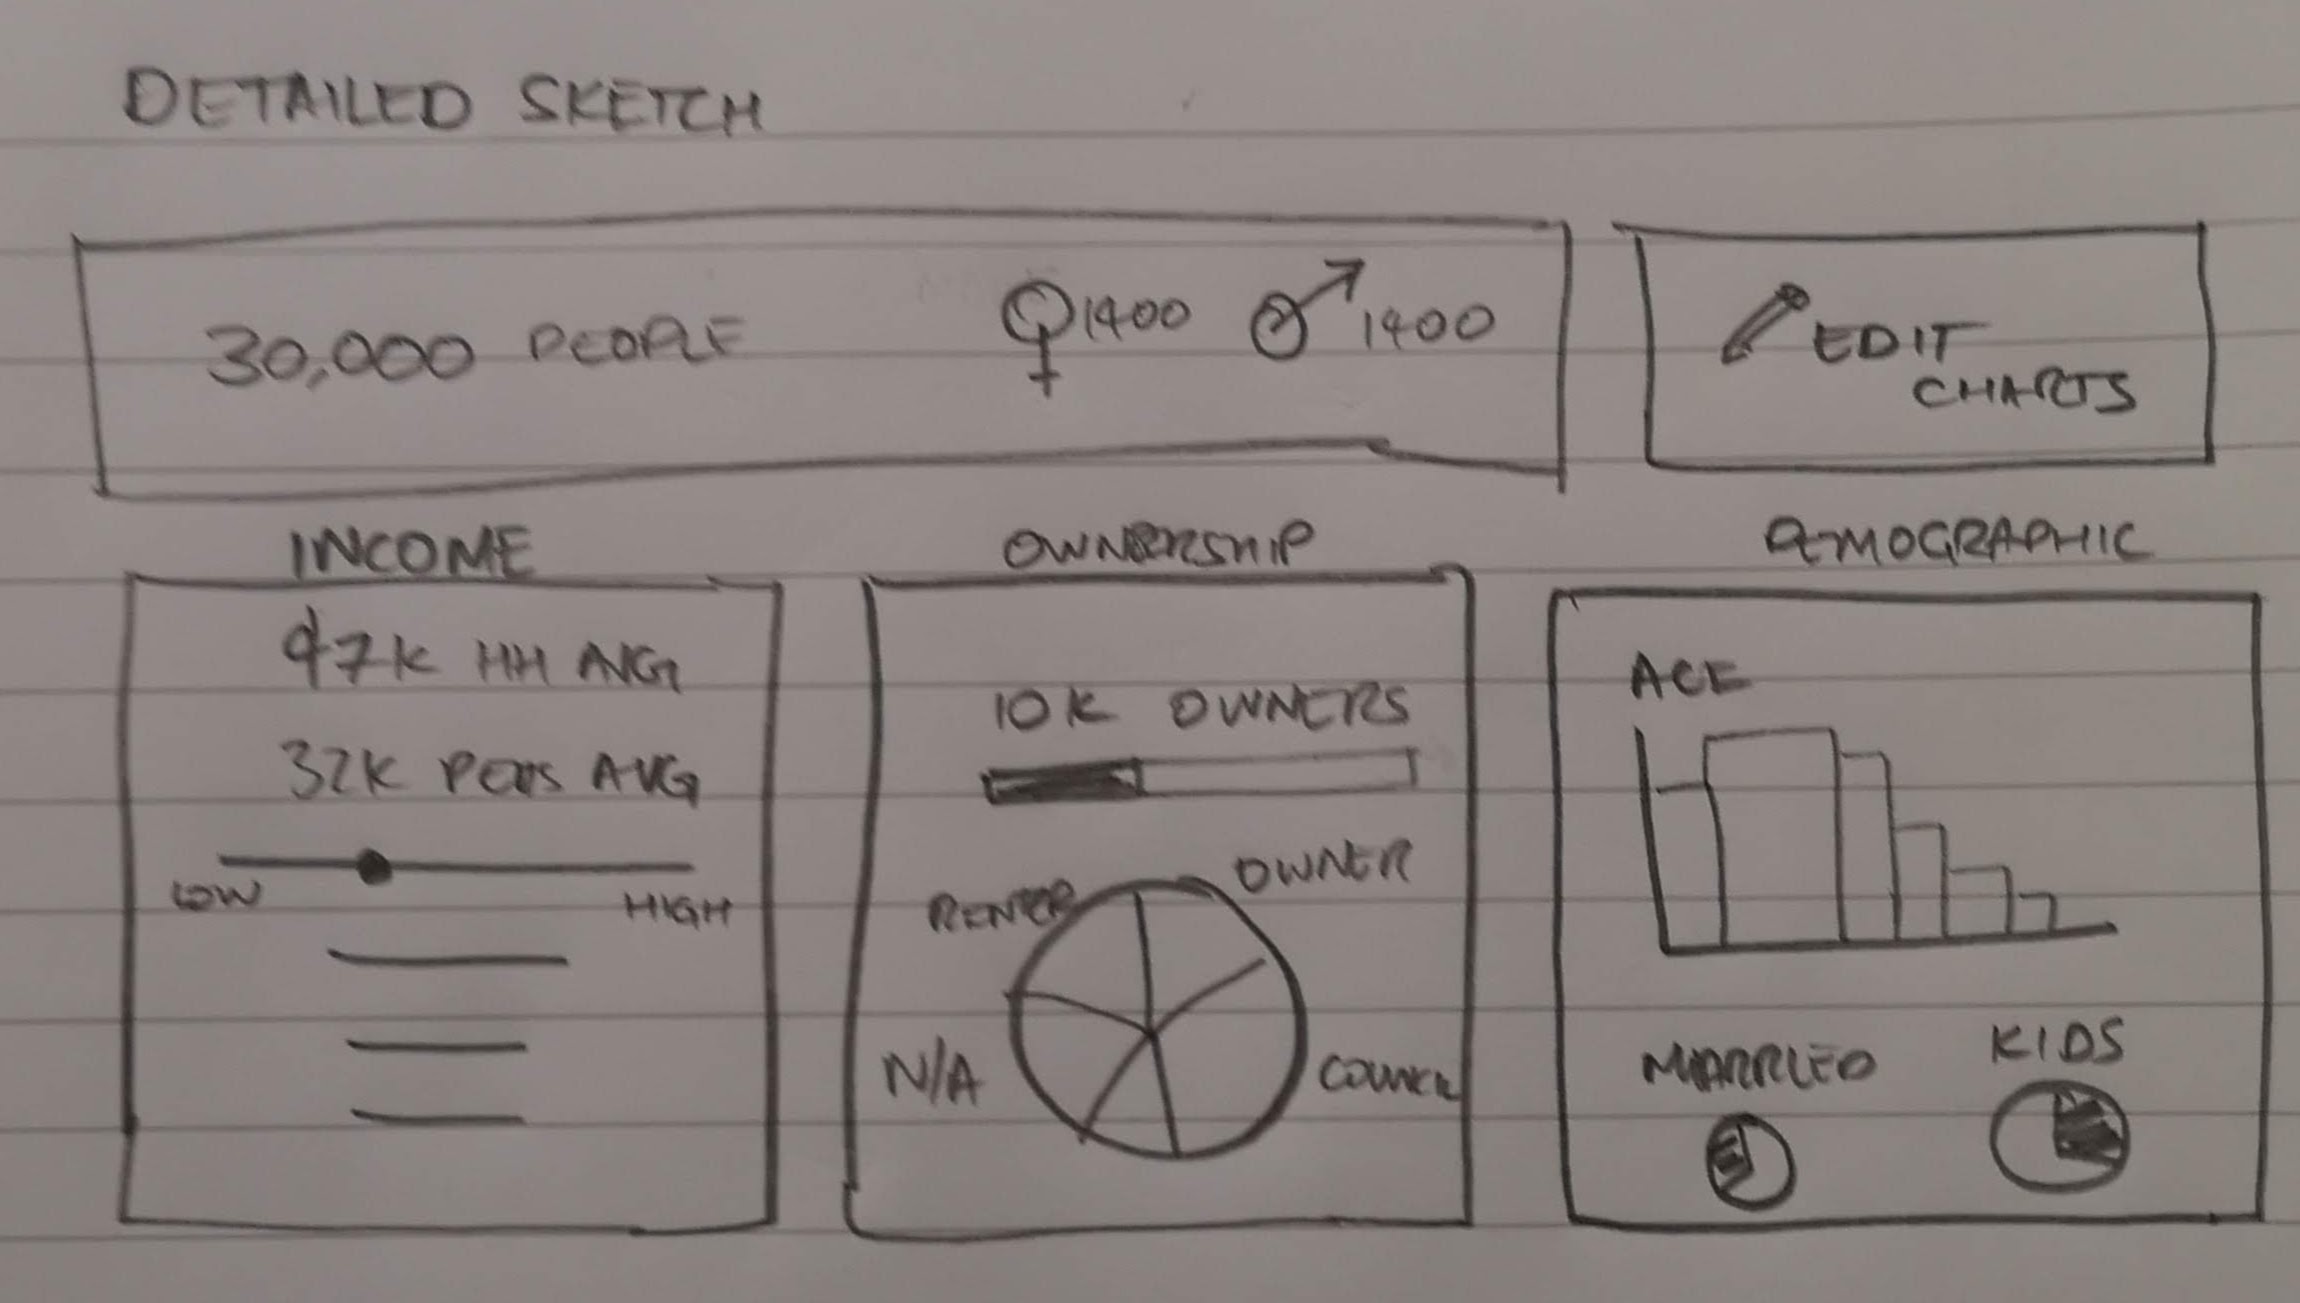 DETAILED SKETCH
30,000 PEOPLE
♀1400 ♂1400
EDIT
CHARTS
INCOME
47K HH AVG
32K PERS AVG
LOW
HIGH
OWNERSHIP
10K OWNERS
OWNER
RENTER
N/A
COUNCIL
DEMOGRAPHIC
AGE
MARRIED
KIDS